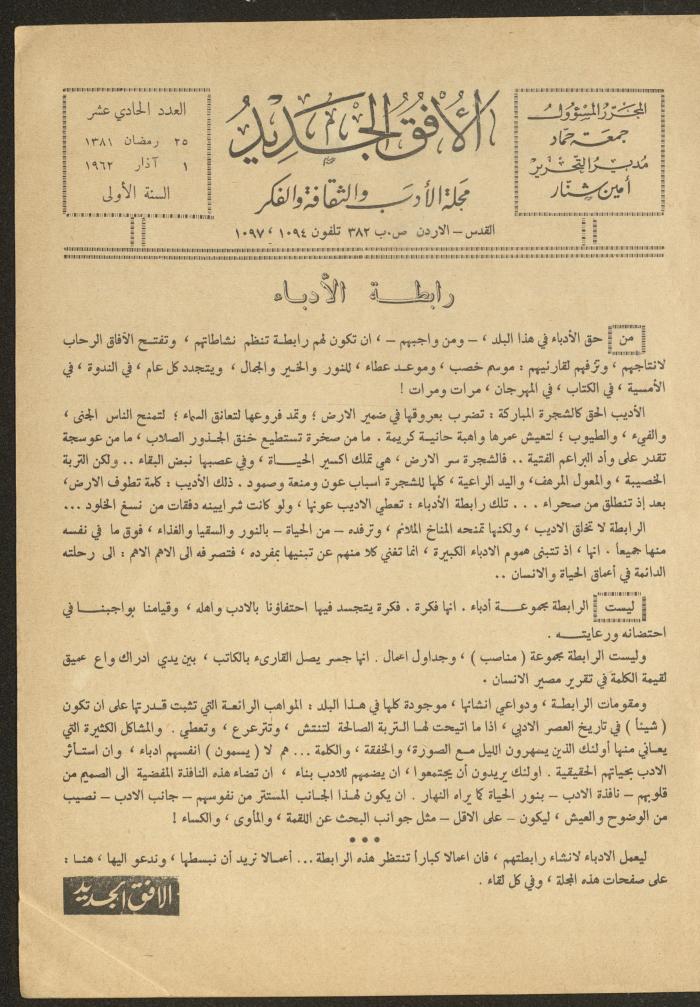 المحرر المسؤول
جمعة حماد
مدير التحرير
أمين شنار
الأفق الجديد
مجلة الأدب والثقافة والفكر
القدس – الاردن ص.ب ٣٨٢ تلفون ١٠٩٤ ، ١٠٩٧
العدد الحادي عشر
٢٥ رمضان ١٣٨١
١ آذار ١٩٦٢
السنة الأولى
رابطة الأدباء
من حق الأدباء في هذا البلد ، – ومن واجبهم – ، ان تكون لهم رابطة تنظم نشاطاتهم ، وتفتح الآفاق الرحاب
لانتاجهم ، وتزفهم لقارئيهم : موسم خصب ، وموعد عطاء ، للنور والخير والجمال ، ويتجدد كل عام ، في الندوة ، في
الأمسية ، في الكتاب ، في المهرجان ، مرات ومرات !
الأديب الحق كالشجرة المباركة : تضرب بعروقها في ضمير الارض ؛ وتمد فروعها لتعانق السماء ؛ لتمنح الناس الجنى ،
والفيء ، والطيوب ؛ لتعيش عمرها واهبة حانية كريمة . ما من صخرة تستطيع خنق الجذور الصلاب ، ما من عوسجة
تقدر على وأد البراعم الفتية .. فالشجرة سر الارض ، هي تملك اكسير الحياة ، وفي عصبها نبض البقاء .. ولكن التربة
الخصيبة ، والمعول المرهف، واليد الراعية ، كلها للشجرة اسباب عون ومنعة وصمود . ذلك الأديب : كلمة تطوف الارض،
بعد إذ تنطلق من صحراء ... تلك رابطة الأدباء : تعطي الاديب عونها ، ولو كانت شرايينه دفقات من نسغ الخلود ...
الرابطة لا تخلق الاديب ، ولكنها تمنحه المناخ الملائم ، وترفده – من الحياة – بالنور والسقيا والغذاء ، فوق ما في نفسه
منها جميعاً . انها ، اذ تتبنى هموم الادباء الكبيرة ، انما تغني كلا منهم عن تبنيها بمفرده ، فتصرفه الى الاهم الاهم : الى رحلته
الدائمة في أعماق الحياة والانسان ..
ليست الرابطة مجموعة أدباء . انها فكرة . فكرة يتجسد فيها احتفاؤنا بالادب واهله ، وقيامنا بواجبنا في
احتضانه ورعايته .
وليست الرابطة مجموعة ( مناصب ) ، وجداول اعمال . انها جسر يصل القارىء بالكاتب ، بين يدي ادراك واع عميق
لقيمة الكلمة في تقرير مصير الانسان .
ومقومات الرابطة ، ودواعي انشائها ، موجودة كلها في هذا البلد : المواهب الرائعة التي تثبت قدرتها على ان تكون
( شيئاً ) في تاريخ العصر الادبي ، اذا ما اتيحت لها التربة الصالحة لتنتش ، وتترعرع ، وتعطي . والمشاكل الكثيرة التي
يعاني منها أولئك الذين يسهرون الليل مع الصورة، والخفقة ، والكلمة ... هم لا ( يسمون ) انفسهم ادباء ، وان استأثر
الادب بحياتهم الحقيقية . اولئك يريدون أن يجتمعوا، ان يضمهم للادب بناء ، ان تضاء هذه النافذة المفضية الى الصميم من
قلوبهم – نافذة الادب – بنور الحياة كما يراه النهار . ان يكون لهذا الجانب المستتر من نفوسهم – جانب الادب – نصيب
من الوضوح والعيش ، ليكون – على الاقل – مثل جوانب البحث عن اللقمة ، والمأوى ، والكساء !
•••
ليعمل الادباء لانشاء رابطتهم ، فان اعمالا كباراً تنتظر هذه الرابطة ... أعمالا نريد أن نبسطها ، وندعو اليها ، هنا :
على صفحات هذه المجلة ، وفي كل لقاء .
الافق الجديد